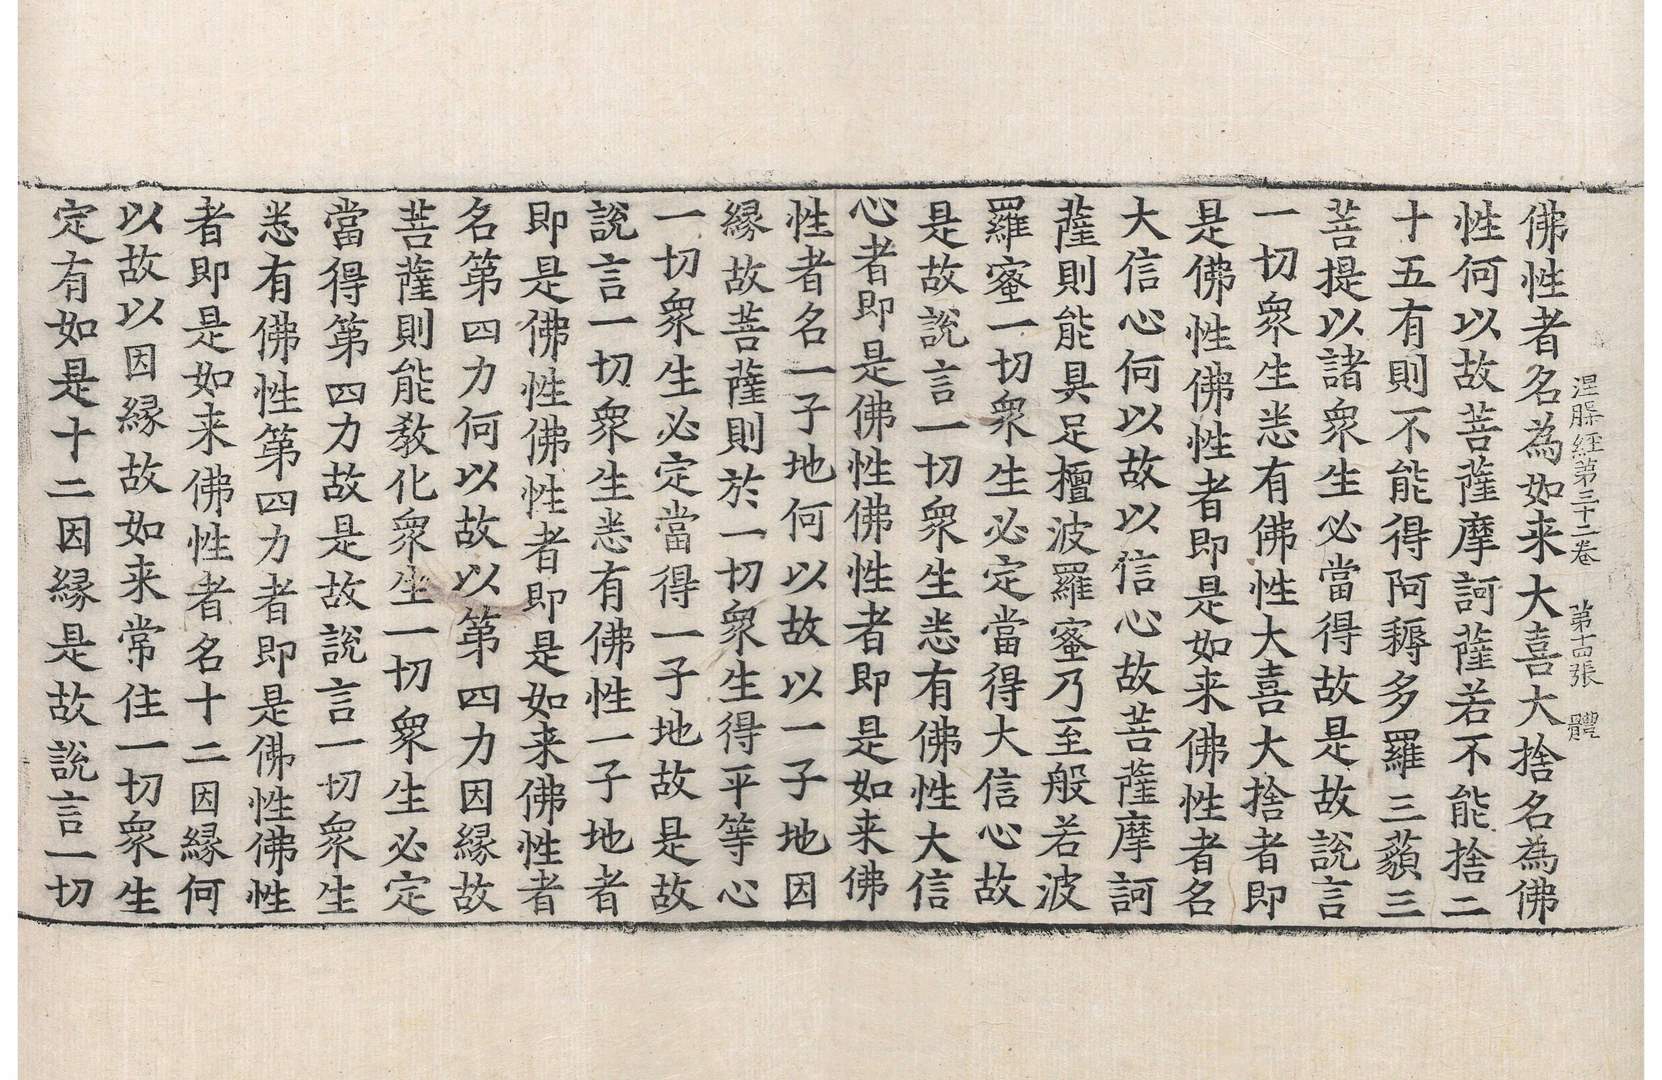 涅槃経第三十二卷　第十四張　體
佛性者名為如来大喜大捨名為佛
性何以故菩薩摩訶薩若不能捨二
十五有則不能得阿耨多羅三藐三
菩提以諸衆生必當得故是故說言
一切衆生悉有佛性大喜大捨者即
是佛性佛性者即是如来佛性者名
大信心何以故以信心故菩薩摩訶
薩則能具足檀波羅蜜乃至般若波
羅蜜一切衆生必定當得大信心故
是故說言一切衆生悉有佛性大信
心者即是佛性佛性者即是如来佛
性者名一子地何以故以一子地因
縁故菩薩則於一切衆生得平等心
一切衆生必定當得一子地故是故
說言一切衆生悉有佛性一子地者
即是佛性佛性者即是如来佛性者
名第四力何以故以第四力因縁故
菩薩則能教化衆生一切衆生必定
當得第四力故是故說言一切衆生
悉有佛性第四力者即是佛性佛性
者即是如来佛性者名十二因縁何
以故以因縁故如来常住一切衆生
定有如是十二因縁是故說言一切